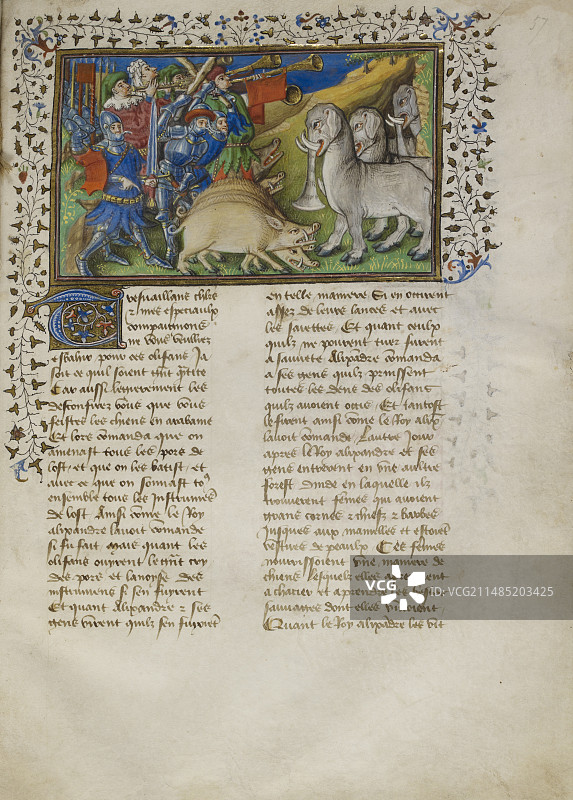 57
Tresvaillans chlrs
et mes especiaulx
compaignons
ne vous vueilliez
esbahir pour ces olifans Ja
soit ce quil soient tant petite
Car aussi legierement les
desconfirez vous que vous
feistes les chiens en
Et lors comanda que on
amenast tous les pors de
lost / et que on les batist / et
avec ce que on sonnast to9
ensemble tous les instrumes
de lost Ainsi come le Roy
alixandre lavoit comande
si fu fait Mais quant les
olifans ouyrent le cry
des pors et la noyse des
instrumens si sen fuyrent
Et quant Alixandre et ses
gens virent quilz sen fuyoiet
en telle maniere Si en occirent
assez de leurs lances et avec
les saiettes Et quant ceulx
quilz ne peurent tuer furent
a sauvete Alixadre comanda
a ses gens quilz prinssent
toutes les dens des olifans
quilz avoient occis / Et tantost
le firent ainsi come le Roy alix
lavoit comande Lautre jour
apres le Roy alixandre et ses
gens entrerent en une aultre
forest dinde en laquelle ilz
trouverent femes qui avoient
grans cornes et barbes
jusques aux mamelles et estoiet
vestues de peaulx Ces femes
nourrissoient une maniere de
chiens lesquelz elles
a chacier et
sauvaiges dont elles vivoient
Quant le Roy alixadre les vit
VCG
VCG.COM
ID:VCG211485203425